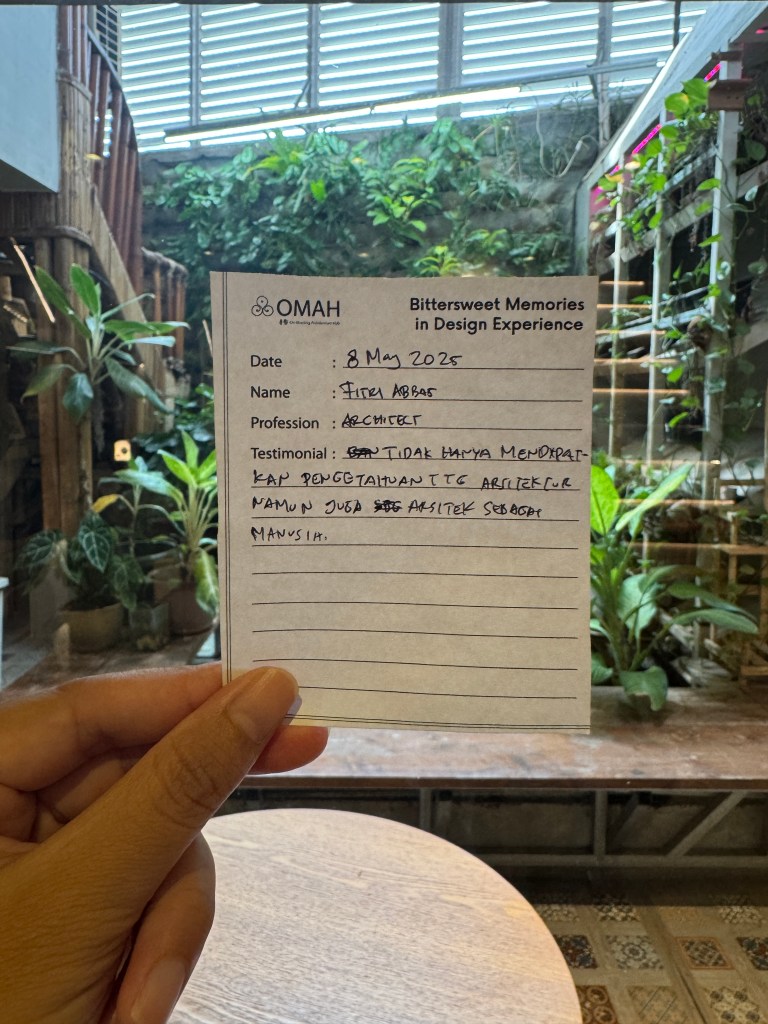 OMAH
Bittersweet Memories
in Design Experience
Date : 8 May 2025
Name : FITRI ABBAS
Profession : ARCHITECT
Testimonial : TIDAK HANYA MENDAPAT-
KAN PENGETAHUAN TTG ARSITEKTUR
NAMUN JUGA ARSITEK SEBAGAI
MANUSIA.